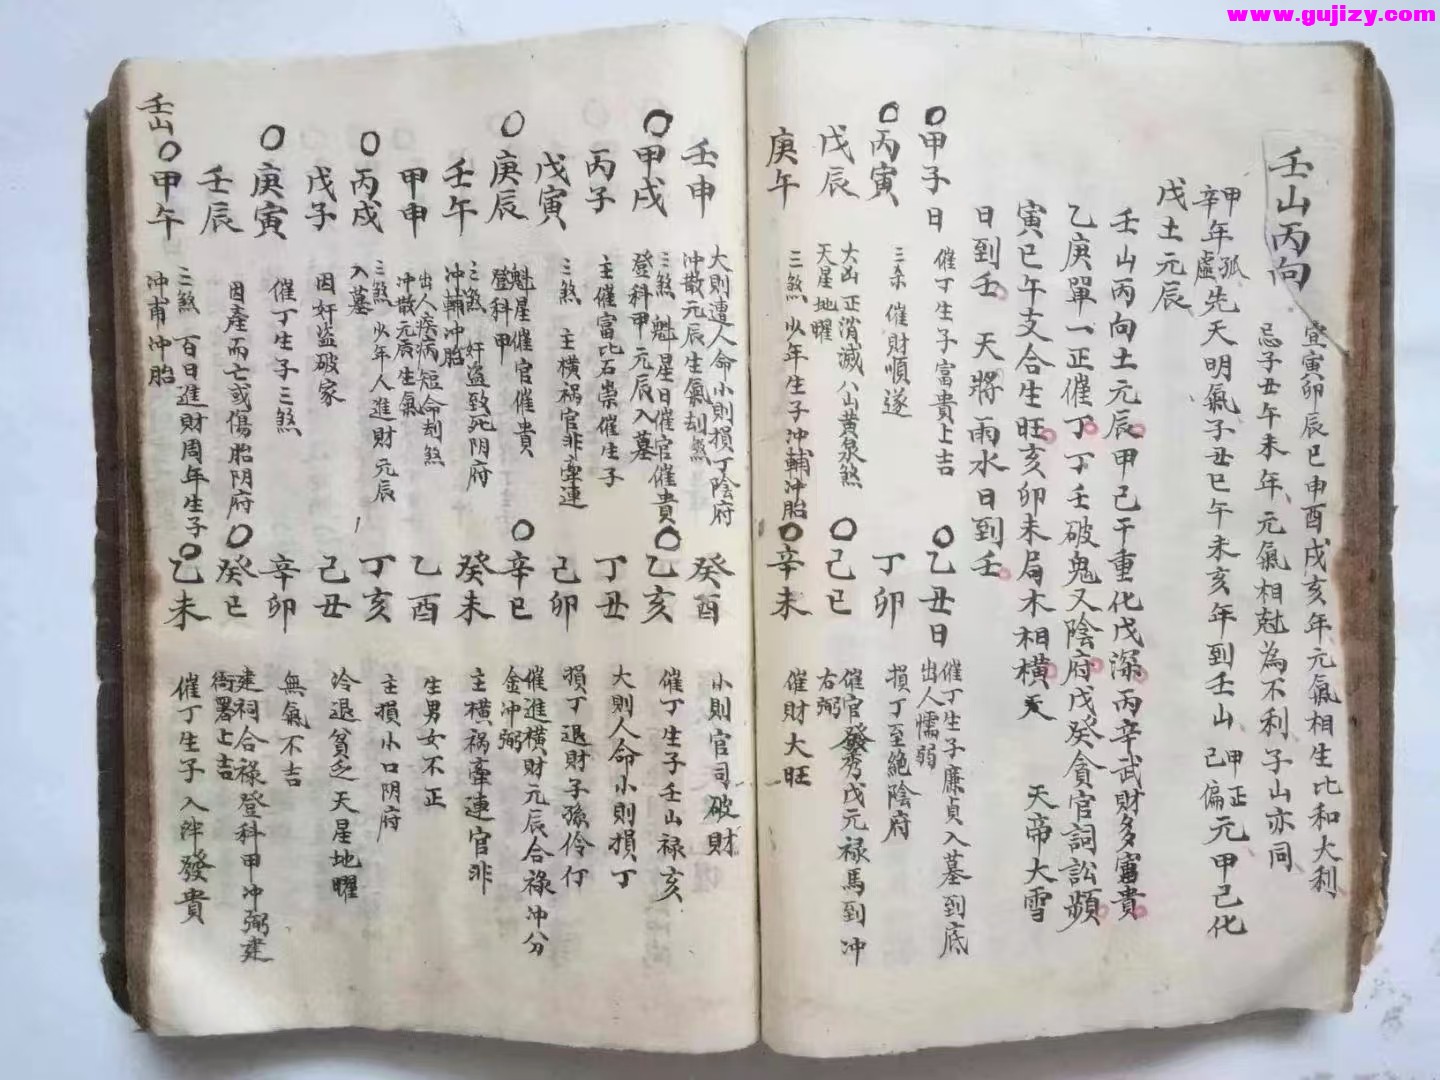 www.gujizy.com
壬山丙向
宜寅卯辰巳申酉戌亥年元氣相生比和大利
忌子丑午未年元氣相尅為不利子山亦同
甲孤
辛年虛先天明氣子丑巳午未亥年到壬山
甲正
己偏元甲己化
戊土元辰
壬山丙向土元辰甲己干重化戊深丙辛武財多富貴
乙庚單一正催丁丁壬破鬼又陰府戊癸貪官詞訟頻
寅巳午支合生旺亥卯未局木相橫天 天帝大雪
日到壬 天將雨水日到壬
甲子日 催丁生子富貴上吉
乙丑日 催丁生子廉貞入墓到底
出人懦弱
丙寅 三杀 催財順遂
丁卯 損丁至絕陰府
戊辰 大凶正消滅八山黃泉煞
天星地曜
己巳 催官發秀戊元禄馬到冲
右弼
庚午 三煞 少年生子沖輔沖胎
辛未 催財大旺
壬申 大則遭人命小則損丁陰府
沖散元辰生氣刦煞
癸酉 小則官司破財
甲戌 三煞 魁星日催官催貴
登科甲元辰入墓
乙亥 催丁生子壬山禄亥
丙子 主催富比石崇催生子
丁丑 大則人命小則損丁
戊寅 三煞 主横祸官非牽連
己卯 損丁退財子孫伶仃
庚辰 魁星催官催貴
登科甲
辛巳 催進横財元辰合禄冲分
金沖弼
壬午 三煞 奸盗致死阴府
沖輔沖胎
癸未 主横祸牽連官非
甲申 出人疾病短命刦煞
沖散元辰生氣
乙酉 生男女不正
丙戌 三煞 少年人進財元辰
入墓
丁亥 主損小口阴府
戊子 因奸盗破家
己丑 冷退貧乏天星地曜
庚寅 催丁生子三煞
辛卯 無氣不吉
壬辰 因產而亡或傷胎阴府
癸巳 建祠合禄登科甲冲弼建
衙署上吉
壬山
甲午 三煞 百日進財周年生子
沖甫沖胎
乙未 催丁生子入泮發貴